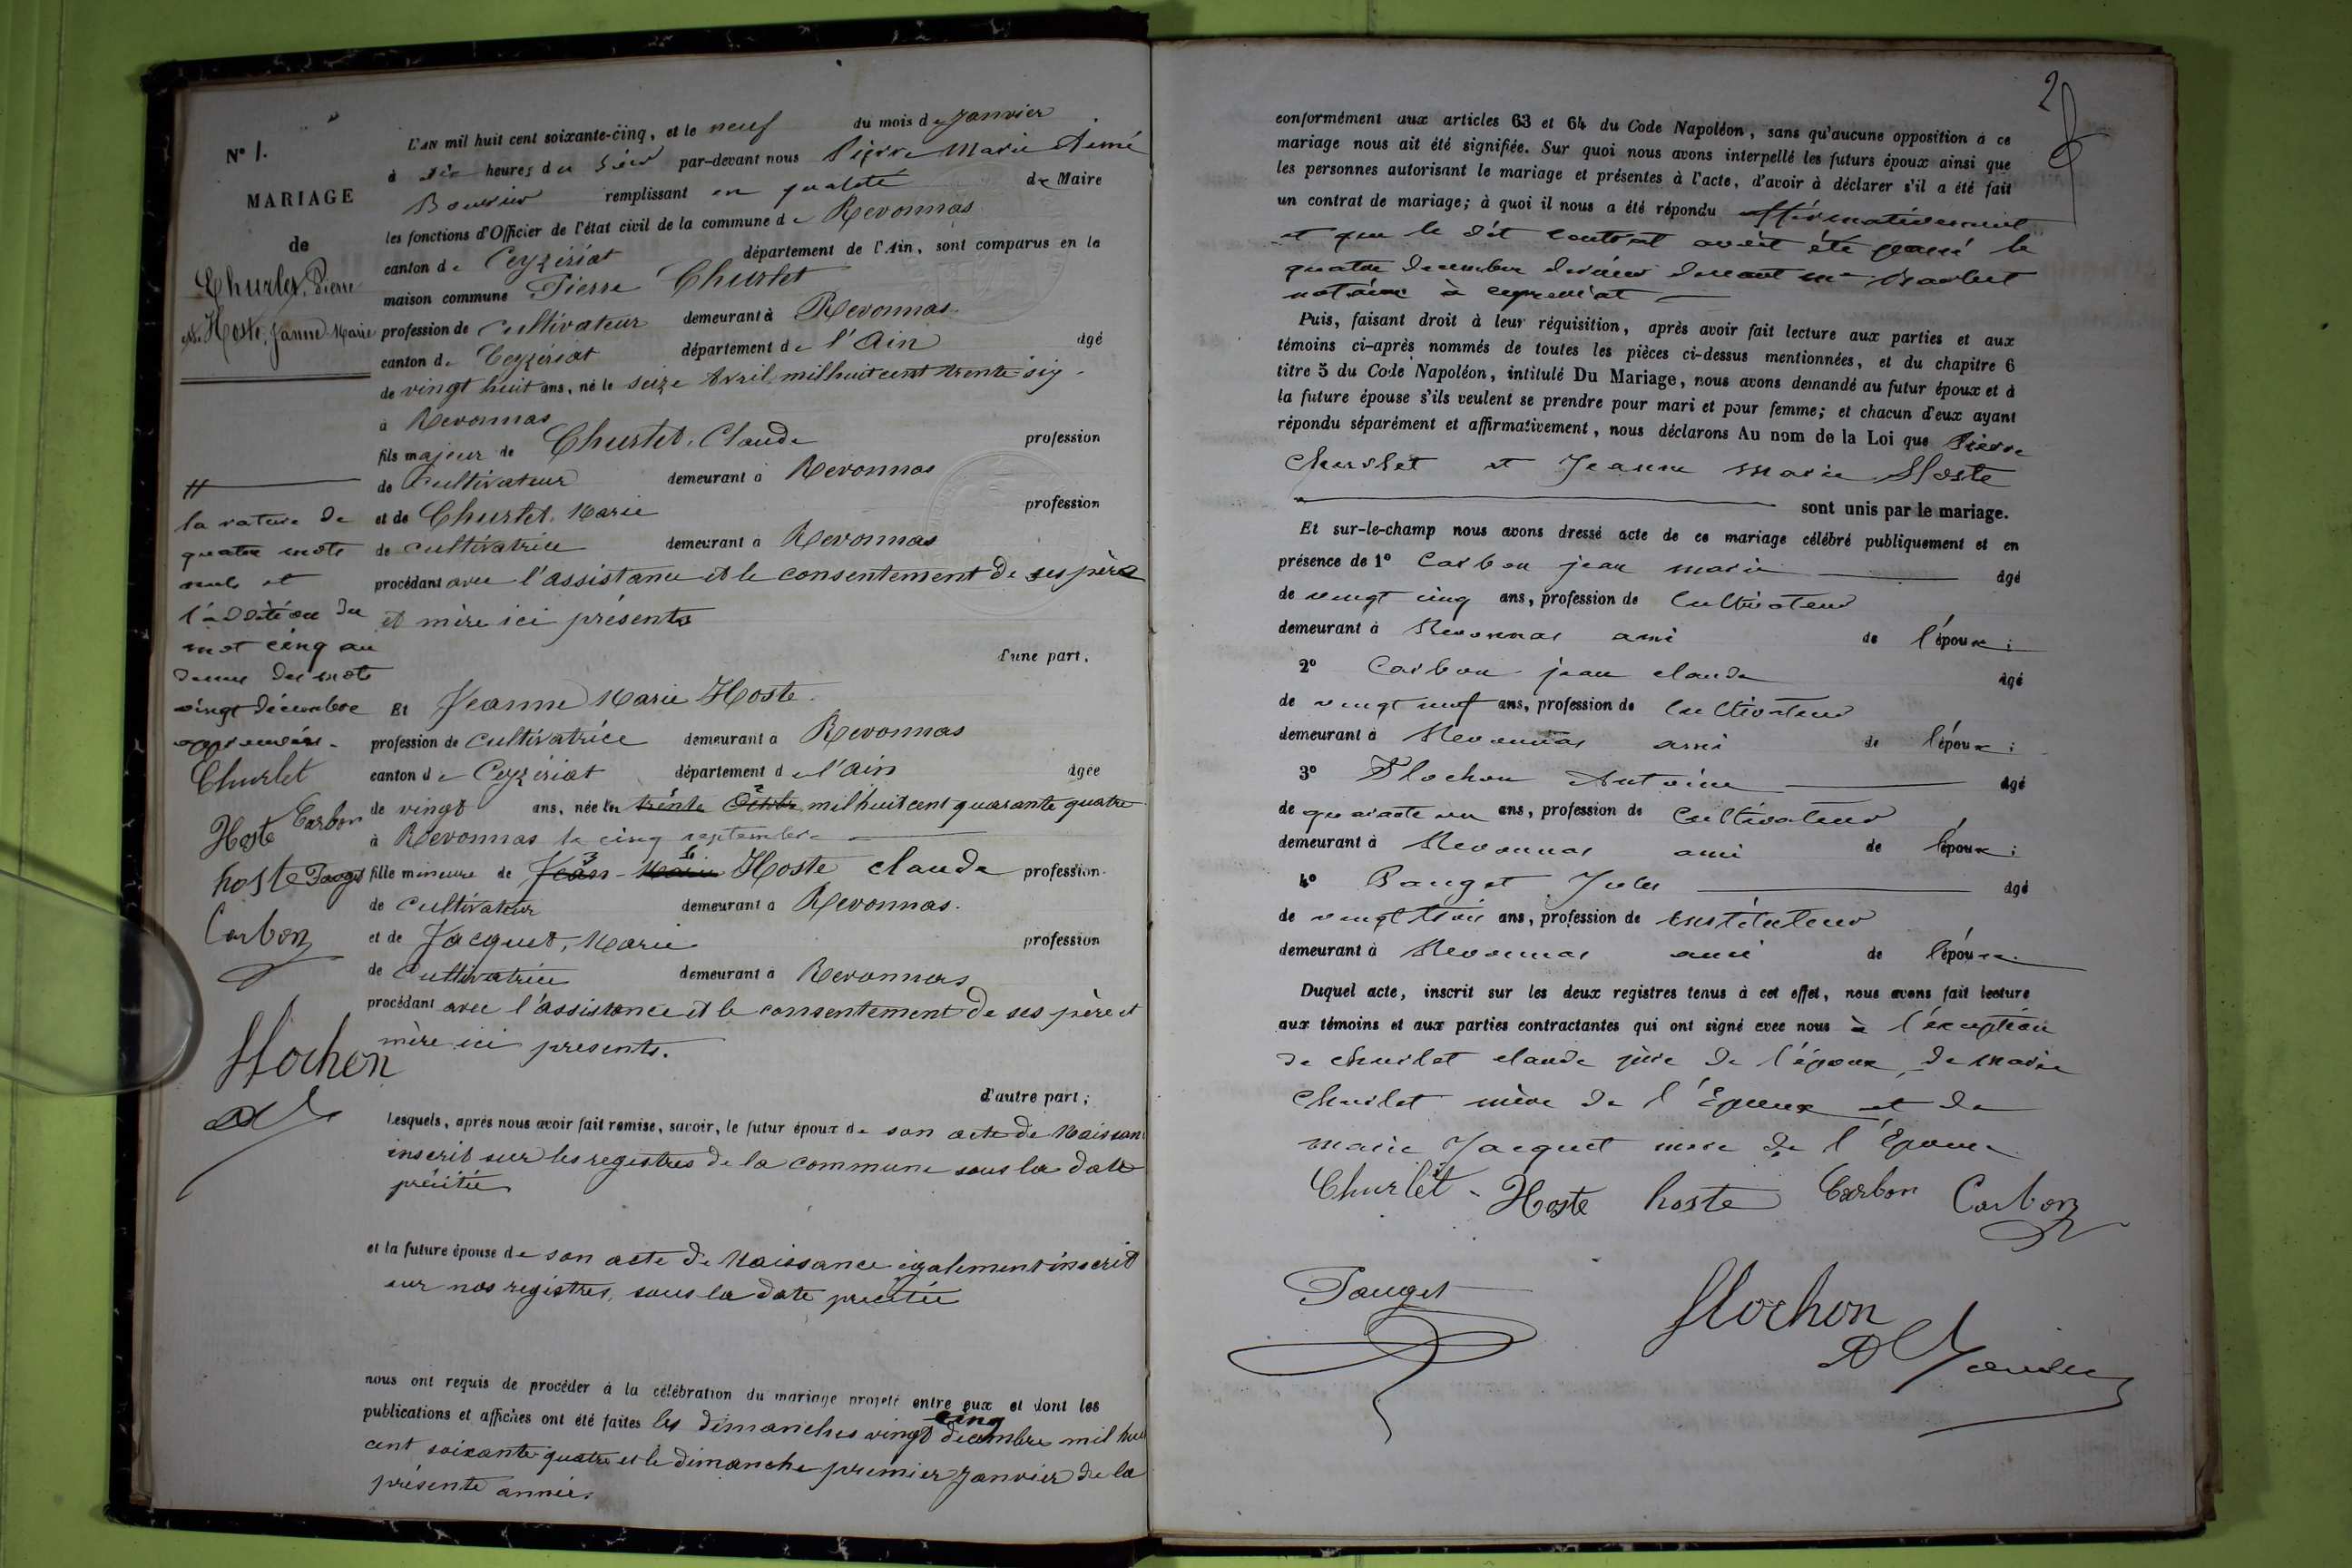 N° 1.
MARIAGE
de
Churlet, Pierre
et Hoste, Jeanne Marie
la rature de
quatre mots
nuls et
l'addition du
mot cinq au
dessus des mots
vingt décembre
approuvées.
Churlet
Hoste Carbon
hoste Pauget
Carbon
Flochon
L'AN mil huit cent soixante-cinq, et le neuf du mois de Janvier
à six heures du soir par-devant nous Pierre Marie Aimé
remplissant en qualité de Maire
les fonctions d'Officier de l'état civil de la commune de Revonnas
canton de Ceyzériat département de l'Ain, sont comparus en la
maison commune Pierre Churlet
profession de cultivateur demeurant à Revonnas.
canton de Ceyzériat département de l'Ain âgé
de vingt huit ans, né le seize Avril mil huit cent trente six.
à Revonnas
fils majeur de Churlet, Claude profession
de cultivateur demeurant à Revonnas
et de Churlet, Marie profession
de cultivatrice demeurant à Revonnas
procédant avec l'assistance et le consentement de ses père
et mère ici présents
d'une part.
Et Jeanne Marie Hoste.
profession de cultivatrice demeurant à Revonnas
canton de Ceyzériat département de l'Ain âgée
de vingt ans, née en trente Octobre mil huit cent quarante quatre
à Revonnas le cinq septembre
fille mineure de Jean-Marie Hoste claude profession
de cultivateur demeurant à Revonnas.
et de Jacquet, Marie profession
de Cultivatrice demeurant à Revonnas
procédant avec l'assistance et le consentement de ses père et
mère ici présents.
d'autre part;
Lesquels, après nous avoir fait remise, savoir, le futur époux de son acte de Naissance
inscrit sur les registres de la commune sous la date
précitée
et la future épouse de son acte de Naissance également inscrit
sur nos registres, sous la date précitée
nous ont requis de procéder à la célébration du mariage projeté entre eux et dont les
publications et affiches ont été faites les dimanches vingt cinq décembre mil huit
cent soixante quatre et le dimanche premier Janvier de la
présente année.
2
conformément aux articles 63 et 64 du Code Napoléon, sans qu'aucune opposition à ce
mariage nous ait été signifiée. Sur quoi nous avons interpellé les futurs époux ainsi que
les personnes autorisant le mariage et présentes à l'acte, d'avoir à déclarer s'il a été fait
un contrat de mariage; à quoi il nous a été répondu affirmativement
et que le dit contrat avait été passé le
quatre décembre dernier devant me
notaire à ceyzériat
Puis, faisant droit à leur réquisition, après avoir fait lecture aux parties et aux
témoins ci-après nommés de toutes les pièces ci-dessus mentionnées, et du chapitre 6
titre 5 du Code Napoléon, intitulé Du Mariage, nous avons demandé au futur époux et à
la future épouse s'ils veulent se prendre pour mari et pour femme; et chacun d'eux ayant
répondu séparément et affirmativement, nous déclarons Au nom de la Loi que Pierre
Churlet et Jeanne Marie Hoste
sont unis par le mariage.
Et sur-le-champ nous avons dressé acte de ce mariage célébré publiquement et en
présence de 1° Carbon jean marie âgé
de vingt cinq ans, profession de Cultivateur
demeurant à Revonnas ami de l'époux;
2° Carbon jean claude âgé
de vingt neuf ans, profession de Cultivateur
demeurant à Revonnas ami de l'époux;
3° Flochon Antoine âgé
de quarante un ans, profession de Cultivateur
demeurant à Revonnas ami de l'époux;
4° Pauget Jules âgé
de vingt trois ans, profession de instituteur
demeurant à Revonnas ami de l'époux.
Duquel acte, inscrit sur les deux registres tenus à cet effet, nous avons fait lecture
aux témoins et aux parties contractantes qui ont signé avec nous à l'exception
de churlet claude père de l'époux, de marie
Churlet mère de l'Epoux et de
marie Jacquet mere de l'Epouse
Churlet. Hoste hoste Carbon Carbon
Pauget
Flochon